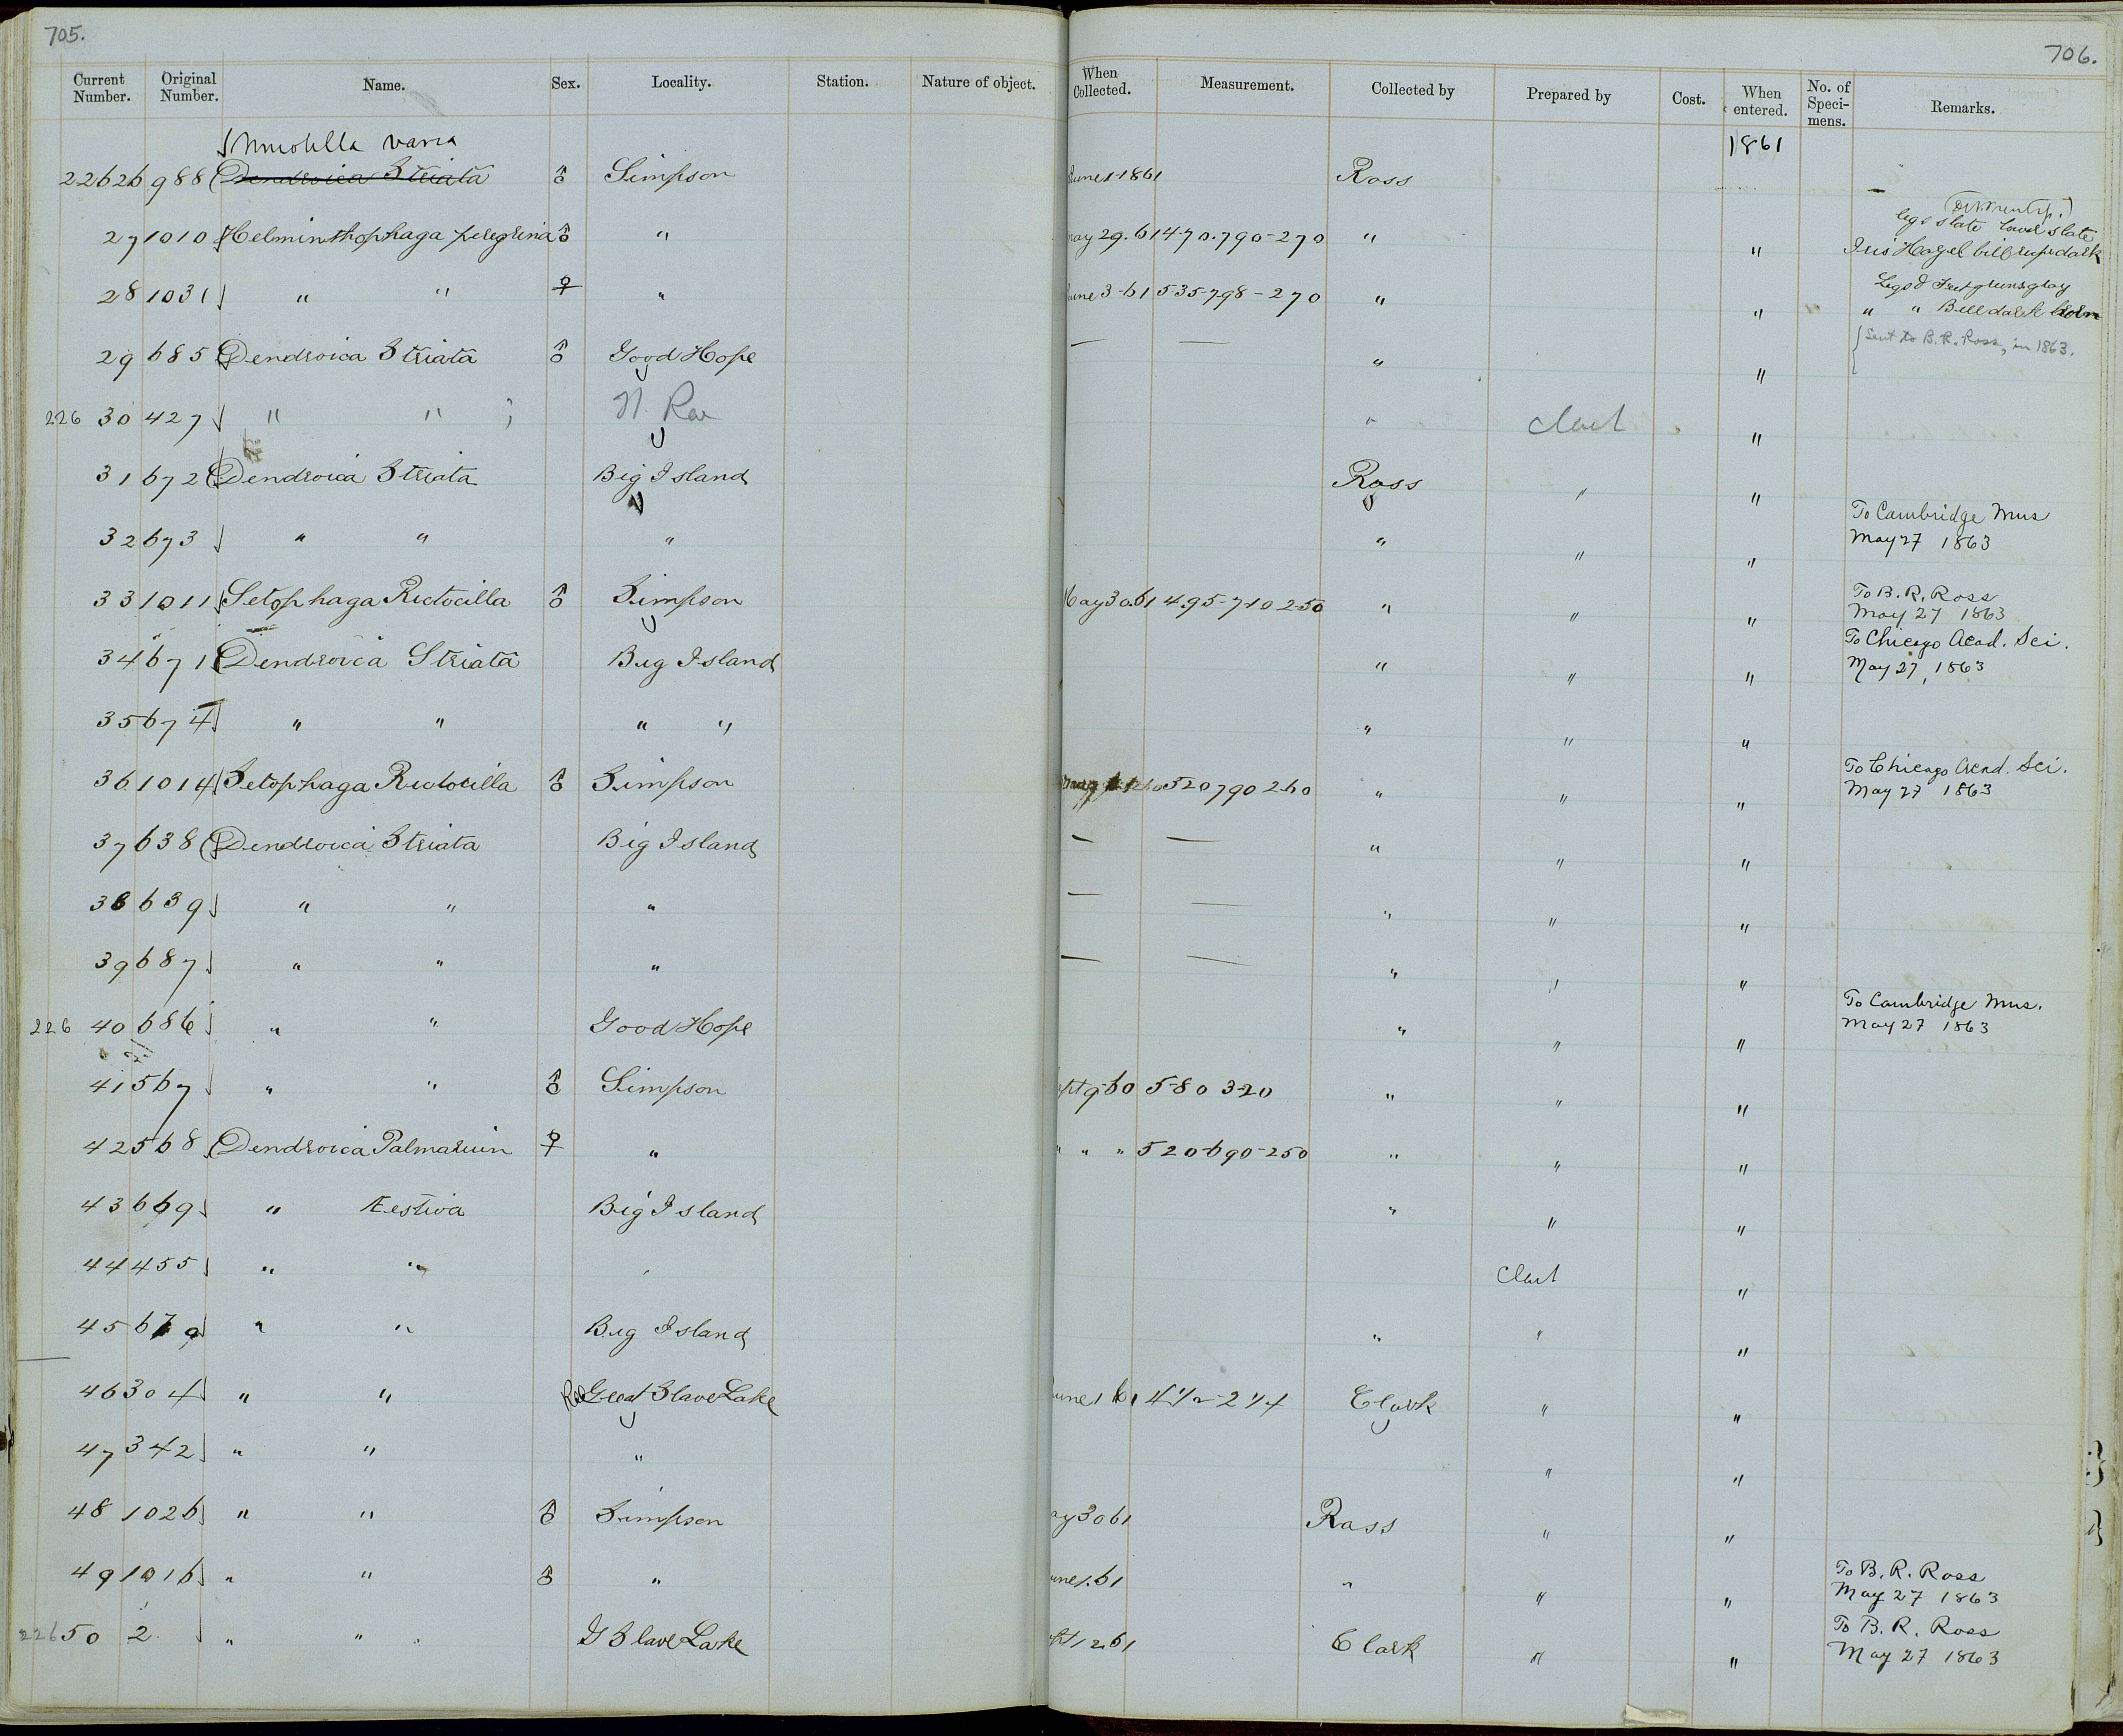 705.
706.
Current Number. Original Number. Name. Sex. Locality. Station. Nature of object. When Collected. Measurement. Collected by Prepared by Cost. When entered. No. of Speci-mens. Remarks.
varia 1861
22626 988 Dendroica Striata ♂ Simpson June 1-1861 Ross
legs slate lower slate
27 1010 Helminthophaga peregrina ♂ " May 29.61 4.70.790-270 " " Iris Hazel bill dark
Legs & Feet gray
28 1031 " " ♀ " June 3-61 535-798-270 " " " " Bill dark horn
29 685 Dendroica Striata ♂ Good Hope — — " " Sent to B. R. Ross, in 1863.
226 30 427 " " " "
31 672 Dendroica Striata Big Island Ross " "
32 673 " " " " " " To Cambridge Mus May 27 1863
33 1011 Setophaga Ructocilla ♂ Simpson May 30.61 4.95-710 250 " " " To B. R. Ross May 27 1863
34 671 Dendroica Striata Big Island " " " To Chicago Acad. Sci. May 27, 1863
35 674 " " " " " " "
36 1014 Setophaga Ructocilla ♂ Simpson 520 790 260 " " " To Chicago Acad. Sci. May 27 1863
37 638 Dendroica Striata Big Island — — " " "
38 639 " " " — — " " "
39 687 " " " — — " " "
226 40 686 " " Good Hope " " " To Cambridge Mus. May 27 1863
41 567 " " ♂ Simpson Sept 9-60 5-80 320 " " "
42 568 Dendroica Palmarum ♀ " " " " 520-690-250 " " "
43 669 " Æstiva Big Island " " "
44 455 " " "
45 " " Big Island " " "
46 304 " " Great Slave Lake June 1 61 4 1/2-2 1/4 Clark " "
47 342 " " " " "
48 1026 " " ♂ Simpson May 30 61 Ross " "
49 1016 " " ♂ " June 1.61 " " " To B. R. Ross May 27 1863
226 50 2 " " G Slave Lake Clark " " To B. R. Ross May 27 1863